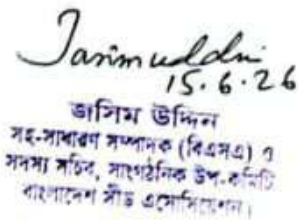 Jasimuddin
15.6.26
জসিম উদ্দিন
সহ-সাধারণ সম্পাদক (বিএসএ) ও
সদস্য সচিব, সাংগঠনিক উপ-কমিটি
বাংলাদেশ সীড এসোসিয়েশন।